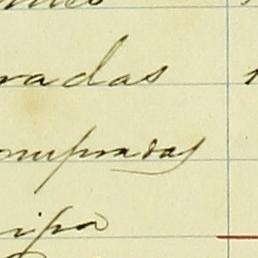 radas
ompradas
ipa